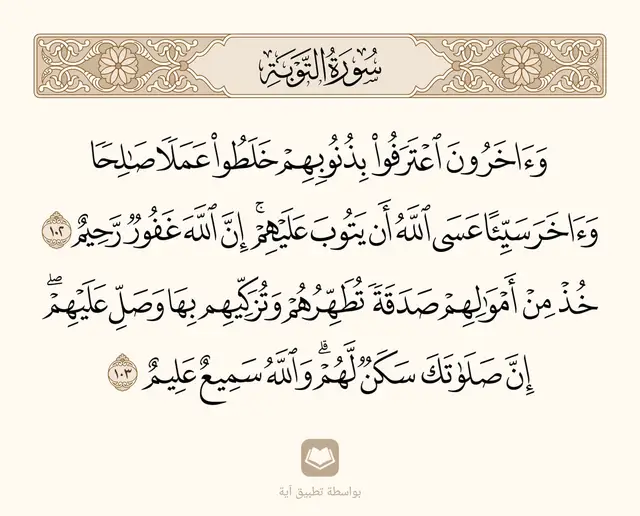 سُورَةُ التَّوۡبَةِ
وَءَاخَرُونَ ٱعۡتَرَفُواْ بِذُنُوبِهِمۡ خَلَطُواْ عَمَلٗا صَٰلِحٗا
وَءَاخَرَ سَيِّئًا عَسَى ٱللَّهُ أَن يَتُوبَ عَلَيۡهِمۡۚ إِنَّ ٱللَّهَ غَفُورٞ رَّحِيمٌ ١٠٢
خُذۡ مِنۡ أَمۡوَٰلِهِمۡ صَدَقَةٗ تُطَهِّرُهُمۡ وَتُزَكِّيهِم بِهَا وَصَلِّ عَلَيۡهِمۡۖ
إِنَّ صَلَوٰتَكَ سَكَنٞ لَّهُمۡۗ وَٱللَّهُ سَمِيعٌ عَلِيمٌ ١٠٣
بواسطة تطبيق آية